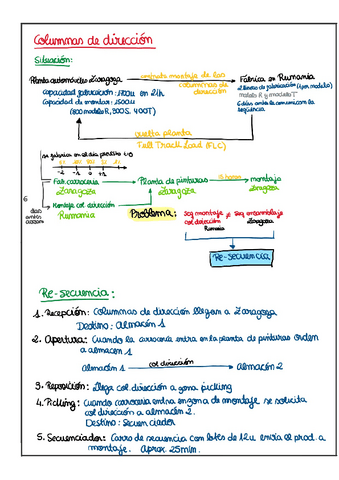 Columnas de dirección
Situación:
Planta automóviles Zaragoza
capacidad fabricación: 1700u en 24h
Capacidad de montar: 1500u
(800 modelo R, 300 S, 400T)
contrata montaje de las
columnas de
dirección
Fábrica en Rumania
2 líneas de fabricación (1 por modelo)
modelo R y modelo T
6 días antes le comunican la
secuencia
vuelta planta
Full Truck Load (FLC)
se fabrica en el día previsto
-2 -1 0 +1 +2
Fab. carrocería
Zaragoza
Planta de pinturas
Zaragoza
montaje
Zaragoza
Montaje col dirección
Rumania
6
días
antes
Problema:
seq montaje
col dirección
Rumania
≠
seq ensamblaje
Zaragoza
Re-secuencia
Re-secuencia:
1. Recepción: Columnas de dirección llegan a Zaragoza
Destino: Almacén 1
2. Apertura: Cuando la carrocería entra en la planta de pinturas orden
a almacen 1
Almacén 1
col dirección
Almacén 2
3. Reposición: llega col dirección a zona picking
4. Picking: Cuando carrocería entra en zona de montaje se solicita
col dirección a almacén 2.
Destino: Secuenciador
5. Secuenciador: Carro de secuencia con lotes de 12u envía al prod. a
montaje. Aprox 25min.